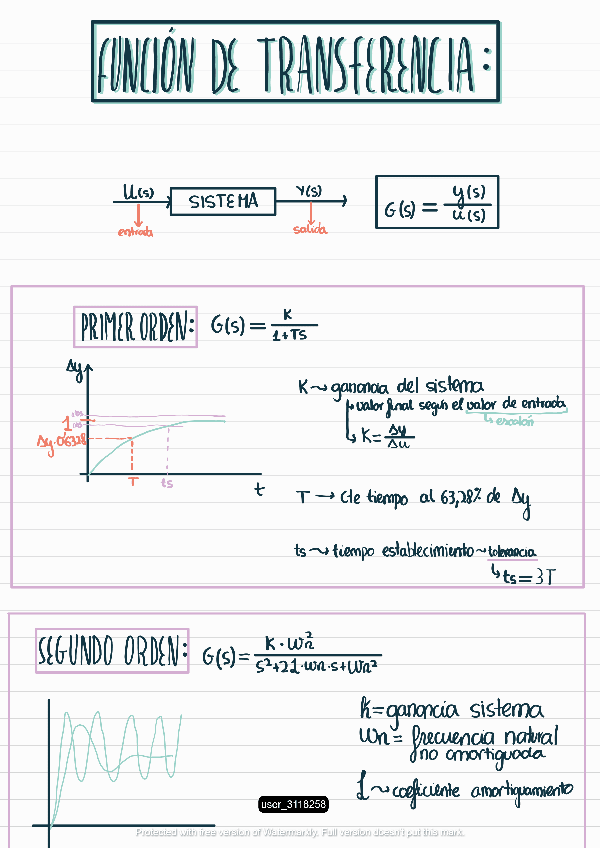 FUNCIÓN DE TRANSFERENCIA:
U(s) SISTEMA Y(s)
entrada salida
G(s) = y(s) / u(s)
PRIMER ORDEN: G(s) = K / 1+Ts
Δy
1
Δy·0'6328
T ts t
K → ganancia del sistema
valor final según el valor de entrada
escalón
K = Δy / Δu
T → Cte tiempo al 63,28% de Δy
ts → tiempo establecimiento ~ tolerancia
ts = 3T
SEGUNDO ORDEN: G(s) = K · Wn² / s²+2ζ·wn·s+Wn²
K = ganancia sistema
Wn = frecuencia natural
no amortiguada
ζ → coeficiente amortiguamiento
user_3118258
Protected with free version of Watermarkly. Full version doesn't put this mark.